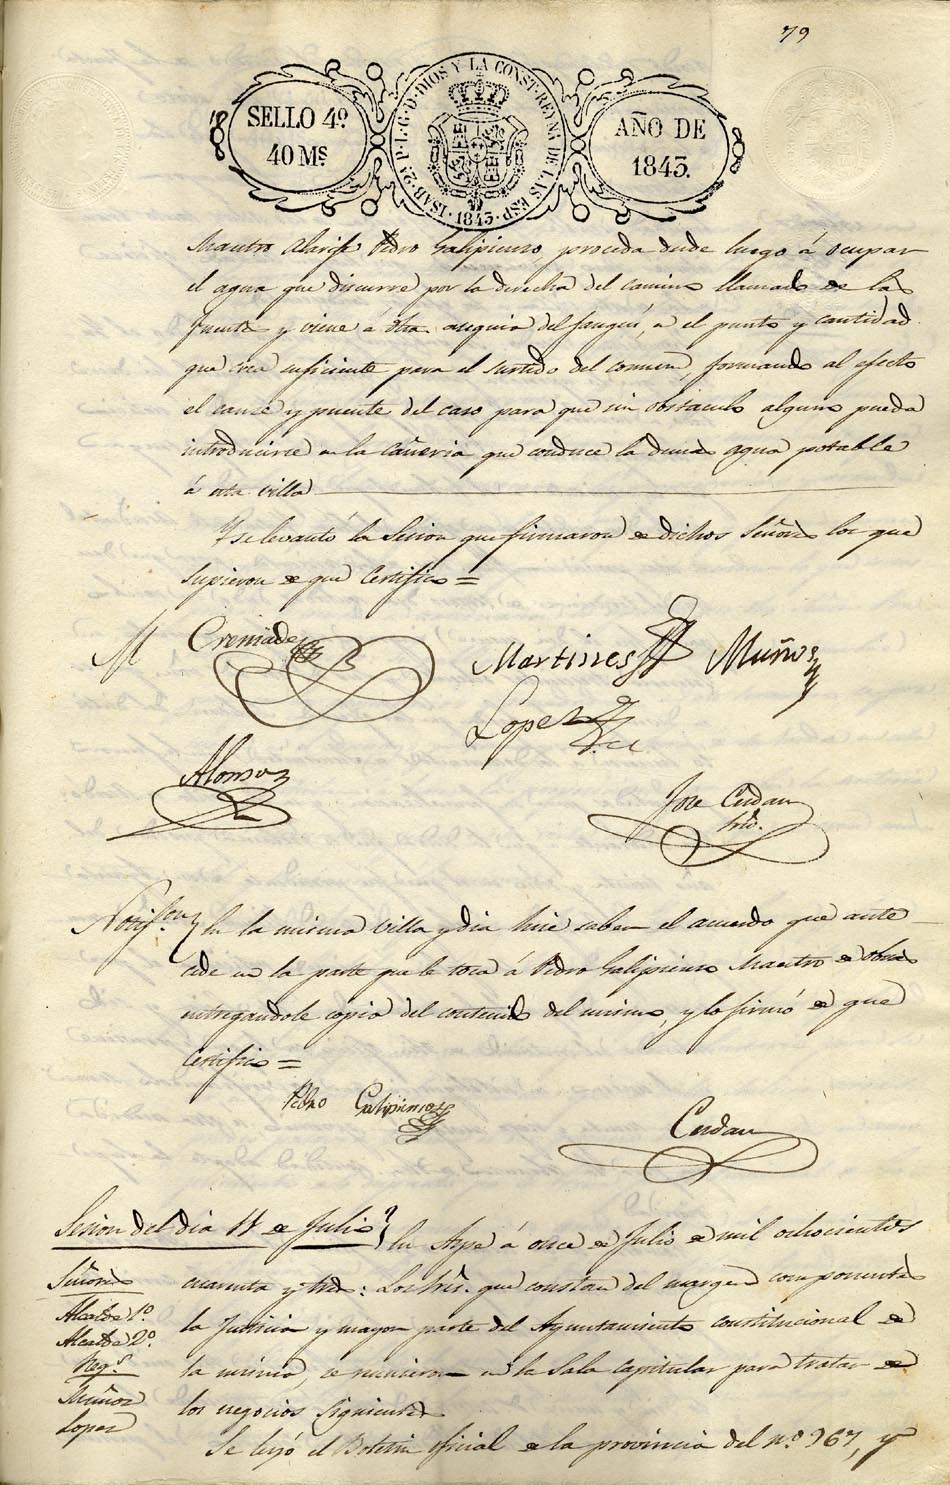 79
SELLO 4º
40 Mˢ
ISAB. 2ª P. L. G. D. DIOS Y LA CONST. REYNA DE LAS ESP.
1843
AÑO DE
1843.
Maestro Alarife Pedro Galipienso, proceda desde luego á ocupar
el agua que discurre por la derecha del camino llamado de la
fuente y viene á otra asequia del fauqui, a el punto y cantidad
que crea suficiente para el surtido del comun, formando al efecto
el cauce y puente del caso para que sin obstaculo alguno pueda
introducirse en la cañeria que conduce la demas agua potable
á esta villa
Y se levantó la Sesion que firmaron de dichos Señores los que
supieron de que Certifico =
M Cremades
Martines Muños
Lopez
Alonso
Jose Cerdan
Srio.
Notifcon En la misma Villa y dia hice saber el acuerdo que ante
cede en la parte que le toca á Pedro Galipienso Maestro de obras
entregandole copia del contenido del mismo, y lo firmó de que
Certifico =
Pedro Galipienso
Cerdan
Sesion del dia 11 de Julio En Aspe á once de Julio de mil ochocientos
Señores cuarenta y tres: Los Sres. que constan del margen componentes
Alcalde 1º.
Alcalde 2º. la Justicia y mayor parte del Ayuntamiento constitucional de
Regs. la misma, se reunieron en la Sala Capitular para tratar de
Muñoz los negocios siguientes
Lopez
Se leyó el Boletin oficial de la provincia del nº. 967, y